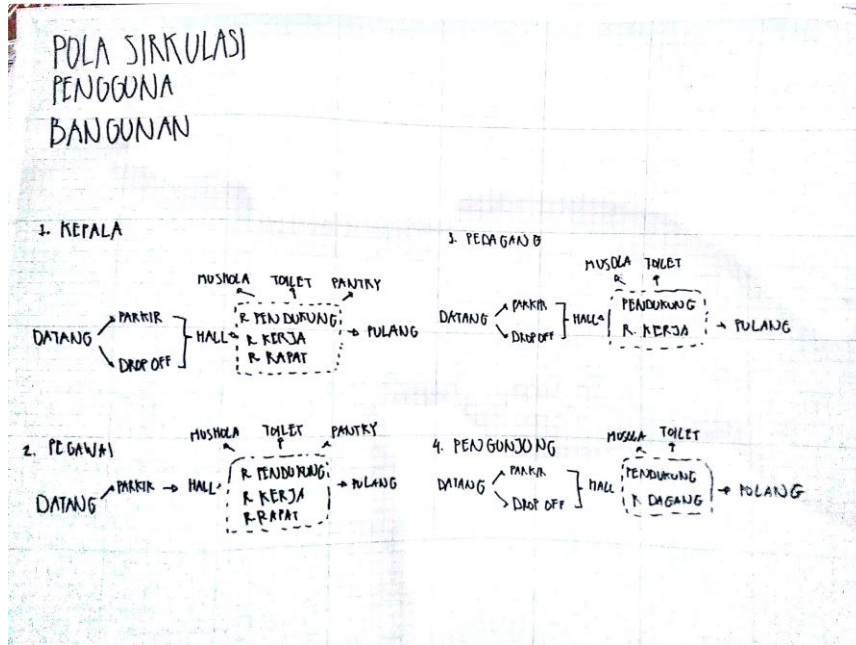 POLA SIRKULASI
PENGGUNA
BANGUNAN
1. KEPALA
MUSHOLA TOILET PANTRY
DATANG PARKIR DROP OFF HALL
R PENDUKUNG
R KERJA
R RAPAT
PULANG
2. PEGAWAI
MUSHOLA TOILET PANTRY
DATANG PARKIR HALL
R PENDUKUNG
R KERJA
R RAPAT
PULANG
3. PEDAGANG
MUSOLA TOILET
DATANG PARKIR DROP OFF HALL
PENDUKUNG
R KERJA
PULANG
4. PENGUNJUNG
MUSOLA TOILET
DATANG PARKIR DROP OFF HALL
PENDUKUNG
R DAGANG
PULANG